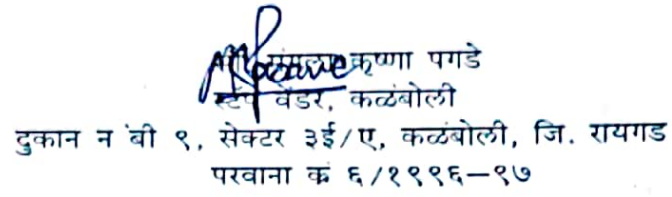 कृष्णा पगडे
स्टॅंप वेंडर, कळंबोली
दुकान न बी ९, सेक्टर ३ई/ए, कळंबोली, जि. रायगड
परवाना क्रं ६/१९९६-९७